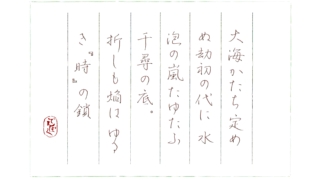 大海かたち定め
ぬ劫初の代に 水
泡の嵐たゆたふ
千尋の底。
折しも焔はゆる
き〝時〟の鎖